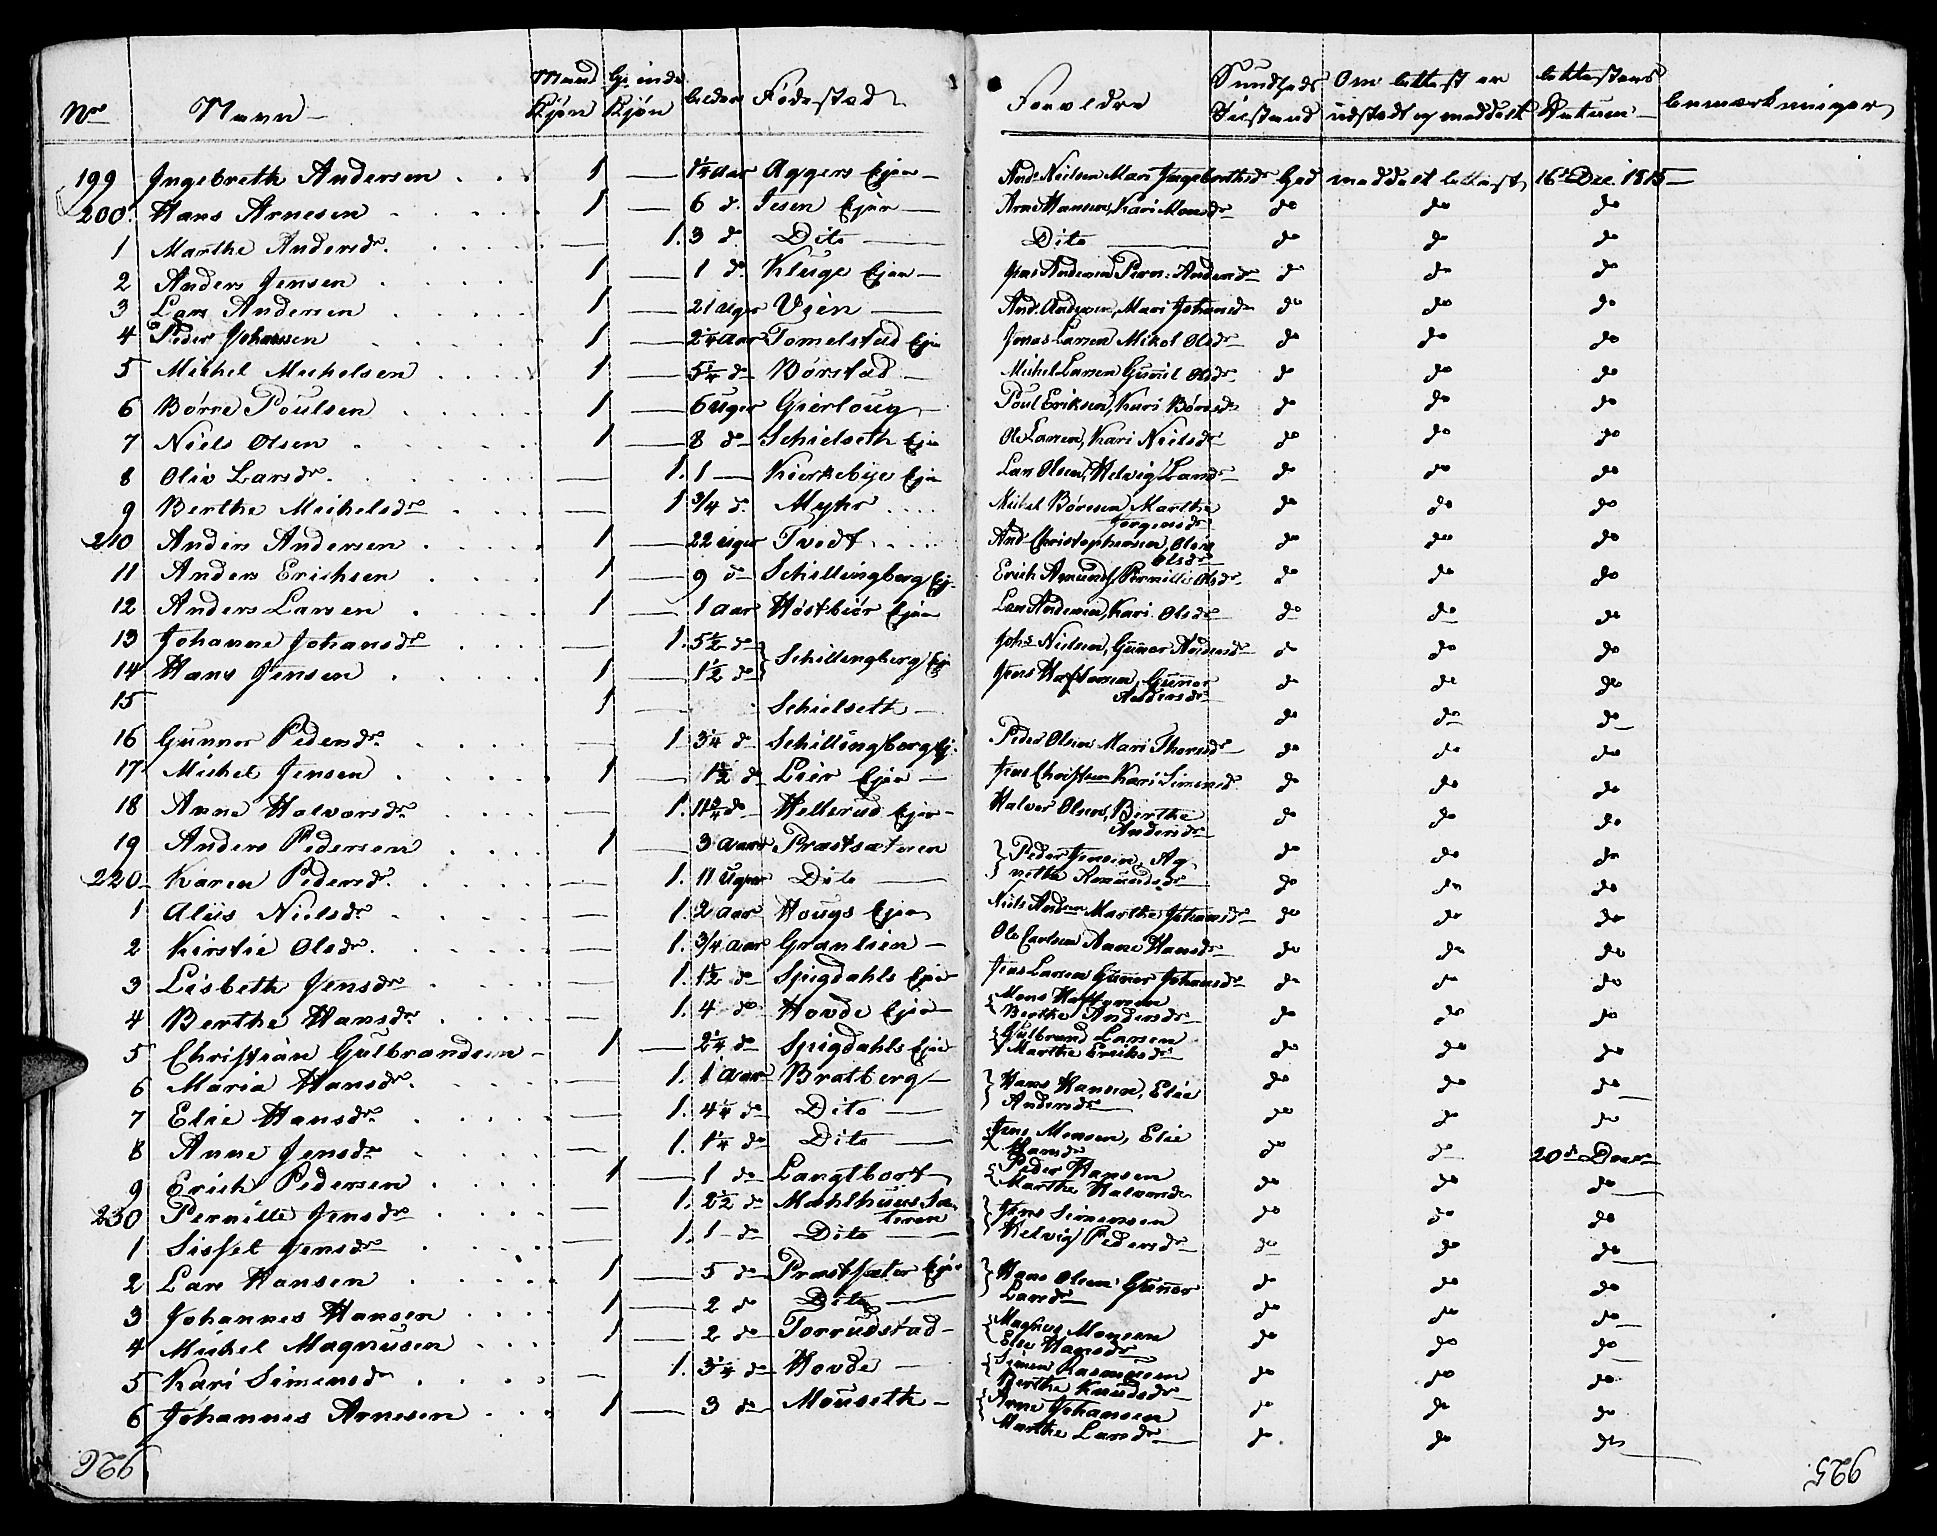 No Navn Mand Kjön Qvinde Kjön Alder Födestad Forældre Sundheds Tilstand Om Attest er udstedt og meddelt Attestens Datum Anmærkninger
199 Ingebreth Andersen 1 — 1¼ Aar Aggers Ejer — And. Nielsen Mari Ingebrethsdr God meddelt Attest 16de Dec. 1815 —
200 Hans Arnesen 1 — 6 do Iesen Ejer — Arne Hansen, Kari Monsdr do do do
1 Marthe Andersdr — 1. 3 do Dito — Dito do do do
2 Anders Jensen 1 — 1 do Kluge Ejer — Jens Andersen Pern: Andersdr do do do
3 Lars Andersen 1 — 21 Uger Vien — And. Andersen, Mari Johansdr do do do
4 Peder Johansen 1 — 2¼ Aar Tomelstad Eje Jonas Larsen Mikol Olsdr do do do
5 Michel Michelsen 1 — 5¼ do Börstad — Michel Larsen Gunnil Olsdr do do do
6 Börre Poulsen 1 — 6 Uger Gierloug — Poul Eriksen, Kari Börresdr do do do
7 Niels Olsen 1 — 8 do Schielseth Eje Ole Larsen, Kari Nielsdr do do do
8 Oliv Larsdr — 1. 1 — Kierkebye Eje Lars Olsen, Helvig Larsdr do do do
9 Berthe Michelsdr — 1 3/4 do Myhr Michel Börresen Marthe
Jörgensdr do do do
210 Anders Andersen 1 — 22 Uger Tvedt And Christophersen, Oleia
Olsdr do do do
11 Anders Erichsen 1 — 9 do Schillingberg Ej. Erich Amunds. Pernille Olsdr do do do
12 Anders Larsen 1 — 1 Aar Höstbiör Ejer Lars Andersen, Kari Olsdr do do do
13 Johanne Johansdr — 1. 5½ do Johs Nielsen, Gunnor Andersdr do do do
14 Hans Jensen 1 — 1½ do Schillingberg Eje Jens Haftorsen, Gunnor
Andersdr do do do
15 1 Schielseth — do do do
16 Gunnor Pedersdr — 1 3¼ do Schillingberg Ej. Peder Olsen Mari Thorsdr do do do
17 Michel Jensen 1 — 1½ do Lier Ejer — Jens Christensen Kari Simensdr do do do
18 Anne Halvorsdr — 1. 11¾ do Hellerud Ejer — Halvor Olsen, Berthe
Andersdr do do do
19 Anders Pedersen 1 — 3 Aar Præstsæteren Peder Jensen, Ag do do do
220 Karen Pedersdr — 1. 11 Uger Dito — nethe Amundsdr do do do
1 Aliis Nielsdr — 1. 2 Aar Hougs Ejer Niels Andersen Marthe Johansdr do do do
2 Kirstie Olsdr — 1. 3/4 Aar Granlien — Ole Carlsen Anne Hansdr do do do
3 Lisbeth Jensdr — 1. 1½ do Spigdahls Ejer Jens Larsen Gunnor Johansdr do do do
4 Berthe Hansdr — 1. 4 do Hovde Ejer — Mons Haftorsen
Berthe Andersdr do do do
5 Christian Gulbrandsen 1 — 2¼ do Spigdahls Eje Gulbrand Larsen
Marthe Eriksdr do do do
6 Maria Hansdr — 1. 1 Aar Bratberg — Hans Hansen, Elie
Andersdr do do do
7 Elie Hansdr — 1. 4¼ do Dito — do do do
8 Anne Jensdr — 1. 1¼ do Dito — Jens Monsen, Elie
Hansdr do do 20de Decr
9 Erich Pedersen 1 — 1 do Langtbort Peder Hansen
Marthe Halvorsdr do do do
230 Pernille Jensdr — 1. 2½ do Mæhlhuus Sæ
teren Jens Simensen do do do
1 Sissel Jensdr — 1. 1 do Dito — Helvig Pedersdr do do do
2 Lars Hansen 1 — 5 do Præstsæter Eje Hans Olsen Gunnor do do do
3 Johannes Hansen 1 — 2 do Dito — Larsdr do do do
4 Michel Magnusen 1 — 2 do Torrudstad — Magnus Monsen
Elie Hansdr do do do
5 Kari Simensdr — 1. 3¼ do Hovde — Simen Rasmusen
Berthe Knudsdr do do do
6 Johannes Arnesen 1 — 3 do Mouseth — Arne Johansen
Marthe Larsdr do do do
926 925